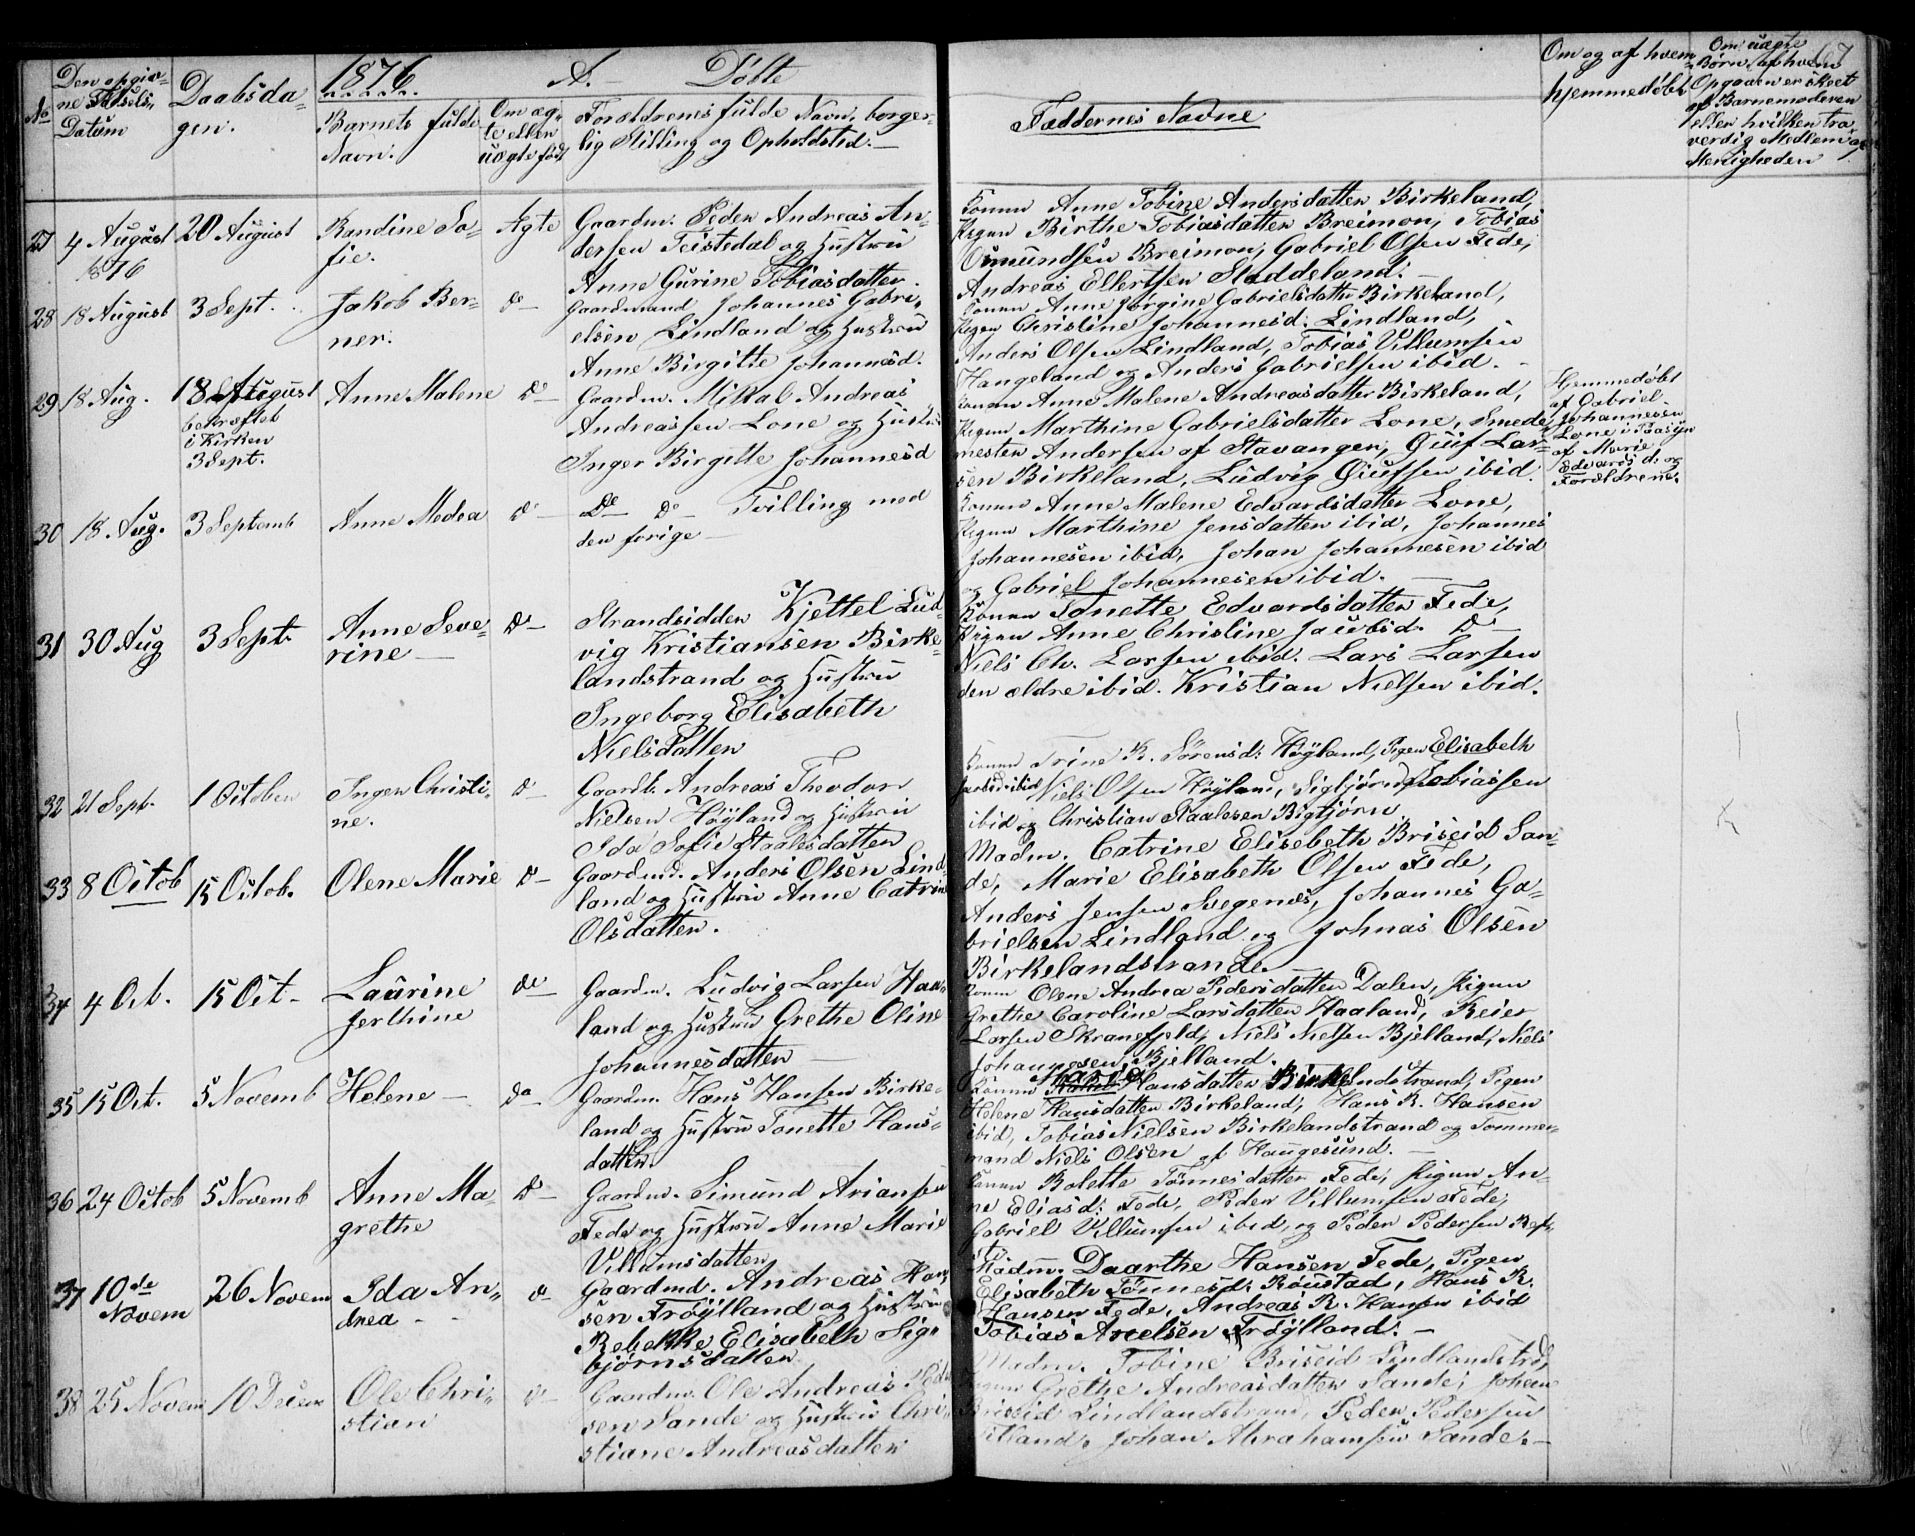 67
1876
A. Døbte
No
Den opgiv-
ne Fødsels-
Datum
Daabsda-
gen.
Barnets fulde
Navn.
Om æg-
te eller
uægte født
Forældrenes fulde Navn, borger-
lig Stilling og Opholdsted.
Faddernes Navne
Om og af hvem
hjemmedøbt
Om uægte
Børn, af hvem
Opgaven er skeet
af Barnemoderen
eller hvilken tro-
værdig Medlem af
Menigheden
27 4 August 1876
20 August
Randine So-
fie.
Ægte
Gaardm. Peder Andreas An-
dersen Feistedal og Hustru
Anne Gurine Tobiasdatter.
Konen Anne Tobine Andersdatter Birkeland,
Pigen Birthe Tobiasdatter Breimon, Tobias
Osmundsen Breimon, Gabriel Olsen Fede,
Andreas Ellertsen Stoddeland.
28 18 August
3 Sept.
Jakob Ber-
ner.
do
Gaardmand Johannes Gabri-
elsen Lindland og Hustru
Anne Birgitte Johannesd.
Konen Anne Jørgine Gabrielsdatter Birkeland,
Pigen Christine Johannesd. Lindland,
Anders Olsen Lindland, Tobias Villumsen
Haugeland og Anders Gabrielsen ibid.
29 18 Aug.
18 August
bekræftet
i Kirken
3 Sept.
Anne Malene
do
Gaardm. Mikal Andreas
Andreassen Lone og Hustru
Inger Birgitte Johannesd
Konen Anne Malene Andreasdatter Birkeland,
Pigen Marthine Gabrielsdatter Lone, Smede-
mester Andersen af Stavanger, Giuf Lar-
sen Birkeland, Ludvig Giufsen ibid.
Hjemmedøbt
af Gabriel
Johannesen
Lone i Paasyn
af Marie
Edvards d. og
Forældrene.
30 18 Aug.
3 Septemb
Anne Medea
do
Do do Tvilling med
den forige
Konen Anne Malene Edvardsdatter Lone,
Pigen Marthine Jensdatter ibid, Johannes
Johannesen ibid, Johan Johannesen ibid
og Gabriel Johannesen ibid.
31 30 Aug
3 Sept.
Anne Seve-
rine
do
Strandsidder Kjettel Lud-
vig Kristiansen Birke-
landstrand og Hustru
Ingeborg Elisabeth
Nielsdatter
Konen Tonette Edvardsdatter Fede,
Pigen Anne Christine Jacobsd. do
Niels Ch. Larsen ibid. Lars Larsen
den ældre ibid. Kristian Nielsen ibid.
32 21 Sept.
1 Octoben
Inger Christi-
ne.
do
Gaardb. Andreas Theodor
Nielsen Høyland og Hustru
Ida Sofie Staalesdatter
Konen Trine K. Sørensd. Høyland, Pigen Elisabeth
ibid Niels Olsen Høyland, Sigbjørn Tobiassen
ibid og Christian Staalesen Bigtjørn
33 8 Octob
15 Octob.
Olene Marie
do
Gaardmd. Anders Olsen Lind-
land og Hustru Anne Catrine
Olsdatter.
Madm. Catrine Elisebeth Briseid San-
de, Marie Elisabeth Olsen Fede,
Anders Jensen Svegenes, Johannes Ga-
brielsen Lindland og Johnas Olsen
Birkelandstrande.
34 4 Oct.
15 Oct
Laurine
Jerthine
do
Gaardm. Ludvig Larsen Haa-
land og Hustru Grethe Oline
Johannesdatter
Konen Olene Andrea Pedersdatter Dalen, Pigen
Grethe Caroline Larsdatter Haaland, Reier
Larsen Skranefjeld, Niels Nielsen Bjelland, Niels
Johannesen Bjelland.
35 15 Oct.
5 Novemb
Helene
do
Gaardm. Hans Hansen Birke-
land og Hustru Tonette Hans-
datter.
Konen Maria Hansdatter Birkelandstrand, Pigen
Helene Hansdatter Birkeland, Hans R. Hansen
ibid, Tobias Nielsen Birkelandstrand og Tømmer-
mand Niels Olsen af Haugesund.
36 24 Octob
5 Novemb
Anne Ma-
grethe
do
Gaardm. Simund Ariansen
Fede og Hustru Anne Marie
Villumsdatter
Konen Bolette Tønnesdatter Fede, Pigen An-
ne Eliasd. Fede, Peder Villumsen Fede,
Gabriel Villumsen ibid, og Peder Pedersen Ref-
sti.
37 10de
Novem
26 Novem
Ida An-
drea
do
Gaardmd. Andreas Han-
sen Frøylland og Hustru
Rebekke Elisabeth Sig-
bjørnsdatter
Madm. Daarthe Hansen Fede, Pigen
Elisabeth Tønnesd. Roustad, Hans R.
Hansen Fede, Andreas R. Hansen ibid
Tobias Axelsen Frøylland.
38 25 Novem
10 Decem
Ole Chri-
stian
do
Gaardm. Ole Andreas Peder-
sen Sande og Hustru Chri-
stiane Andreasdatter
Madm. Tobine Briseid Lindlandstrd,
Pigen Grethe Andreasdatter Sande, Johan
Briseid Lindlandstrand, Peder Pedersen
Johan Abrahamsen Sande.